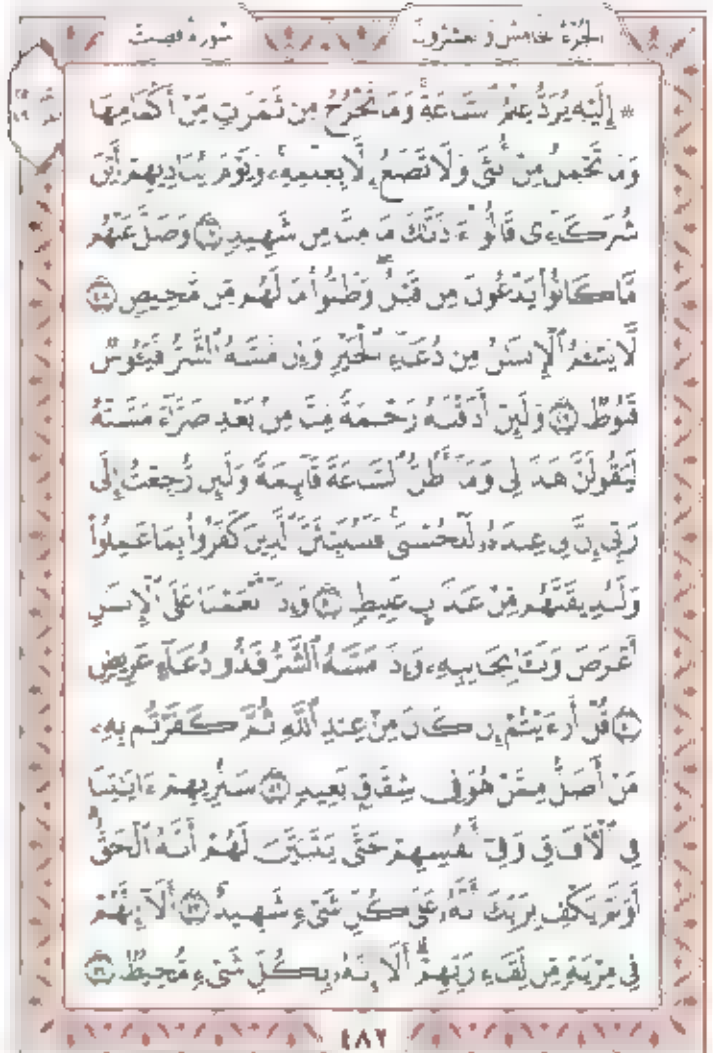 الجزء الخامس والعشرون سورة فصلت
* إِلَيْهِ يُرَدُّ عِلْمُ ٱلسَّاعَةِ وَمَا تَخْرُجُ مِن ثَمَرَٰتٍ مِّنْ أَكْمَامِهَا
وَمَا تَحْمِلُ مِنْ أُنثَىٰ وَلَا تَضَعُ إِلَّا بِعِلْمِهِۦ وَيَوْمَ يُنَادِيهِمْ أَيْنَ
شُرَكَآءِى قَالُوٓاْ ءَاذَنَّٰكَ مَا مِنَّا مِن شَهِيدٍ ٤٧ وَضَلَّ عَنْهُم
مَّا كَانُواْ يَدْعُونَ مِن قَبْلُ وَظَنُّواْ مَا لَهُم مِّن مَّحِيصٍ ٤٨
لَّا يَسْـَٔمُ ٱلْإِنسَٰنُ مِن دُعَآءِ ٱلْخَيْرِ وَإِن مَّسَّهُ ٱلشَّرُّ فَيَـُٔوسٌ
قَنُوطٌ ٤٩ وَلَئِنْ أَذَقْنَٰهُ رَحْمَةً مِّنَّا مِنۢ بَعْدِ ضَرَّآءَ مَسَّتْهُ
لَيَقُولَنَّ هَٰذَا لِى وَمَآ أَظُنُّ ٱلسَّاعَةَ قَآئِمَةً وَلَئِن رُّجِعْتُ إِلَىٰ
رَبِّىٓ إِنَّ لِى عِندَهُۥ لَلْحُسْنَىٰ فَلَنُنَبِّئَنَّ ٱلَّذِينَ كَفَرُواْ بِمَا عَمِلُواْ
وَلَنُذِيقَنَّهُم مِّنْ عَذَابٍ غَلِيظٍ ٥٠ وَإِذَآ أَنْعَمْنَا عَلَى ٱلْإِنسَٰنِ
أَعْرَضَ وَنَـَٔا بِجَانِبِهِۦ وَإِذَا مَسَّهُ ٱلشَّرُّ فَذُو دُعَآءٍ عَرِيضٍ
٥١ قُلْ أَرَءَيْتُمْ إِن كَانَ مِنْ عِندِ ٱللَّهِ ثُمَّ كَفَرْتُم بِهِۦ
مَنْ أَضَلُّ مِمَّنْ هُوَ فِى شِقَاقٍۭ بَعِيدٍ ٥٢ سَنُرِيهِمْ ءَايَٰتِنَا
فِى ٱلْأٓفَاقِ وَفِىٓ أَنفُسِهِمْ حَتَّىٰ يَتَبَيَّنَ لَهُمْ أَنَّهُ ٱلْحَقُّ
أَوَلَمْ يَكْفِ بِرَبِّكَ أَنَّهُۥ عَلَىٰ كُلِّ شَىْءٍ شَهِيدٌ ٥٣ أَلَآ إِنَّهُمْ
فِى مِرْيَةٍ مِّن لِّقَآءِ رَبِّهِمْ أَلَآ إِنَّهُۥ بِكُلِّ شَىْءٍ مُّحِيطٌۢ ٥٤
٤٨٢